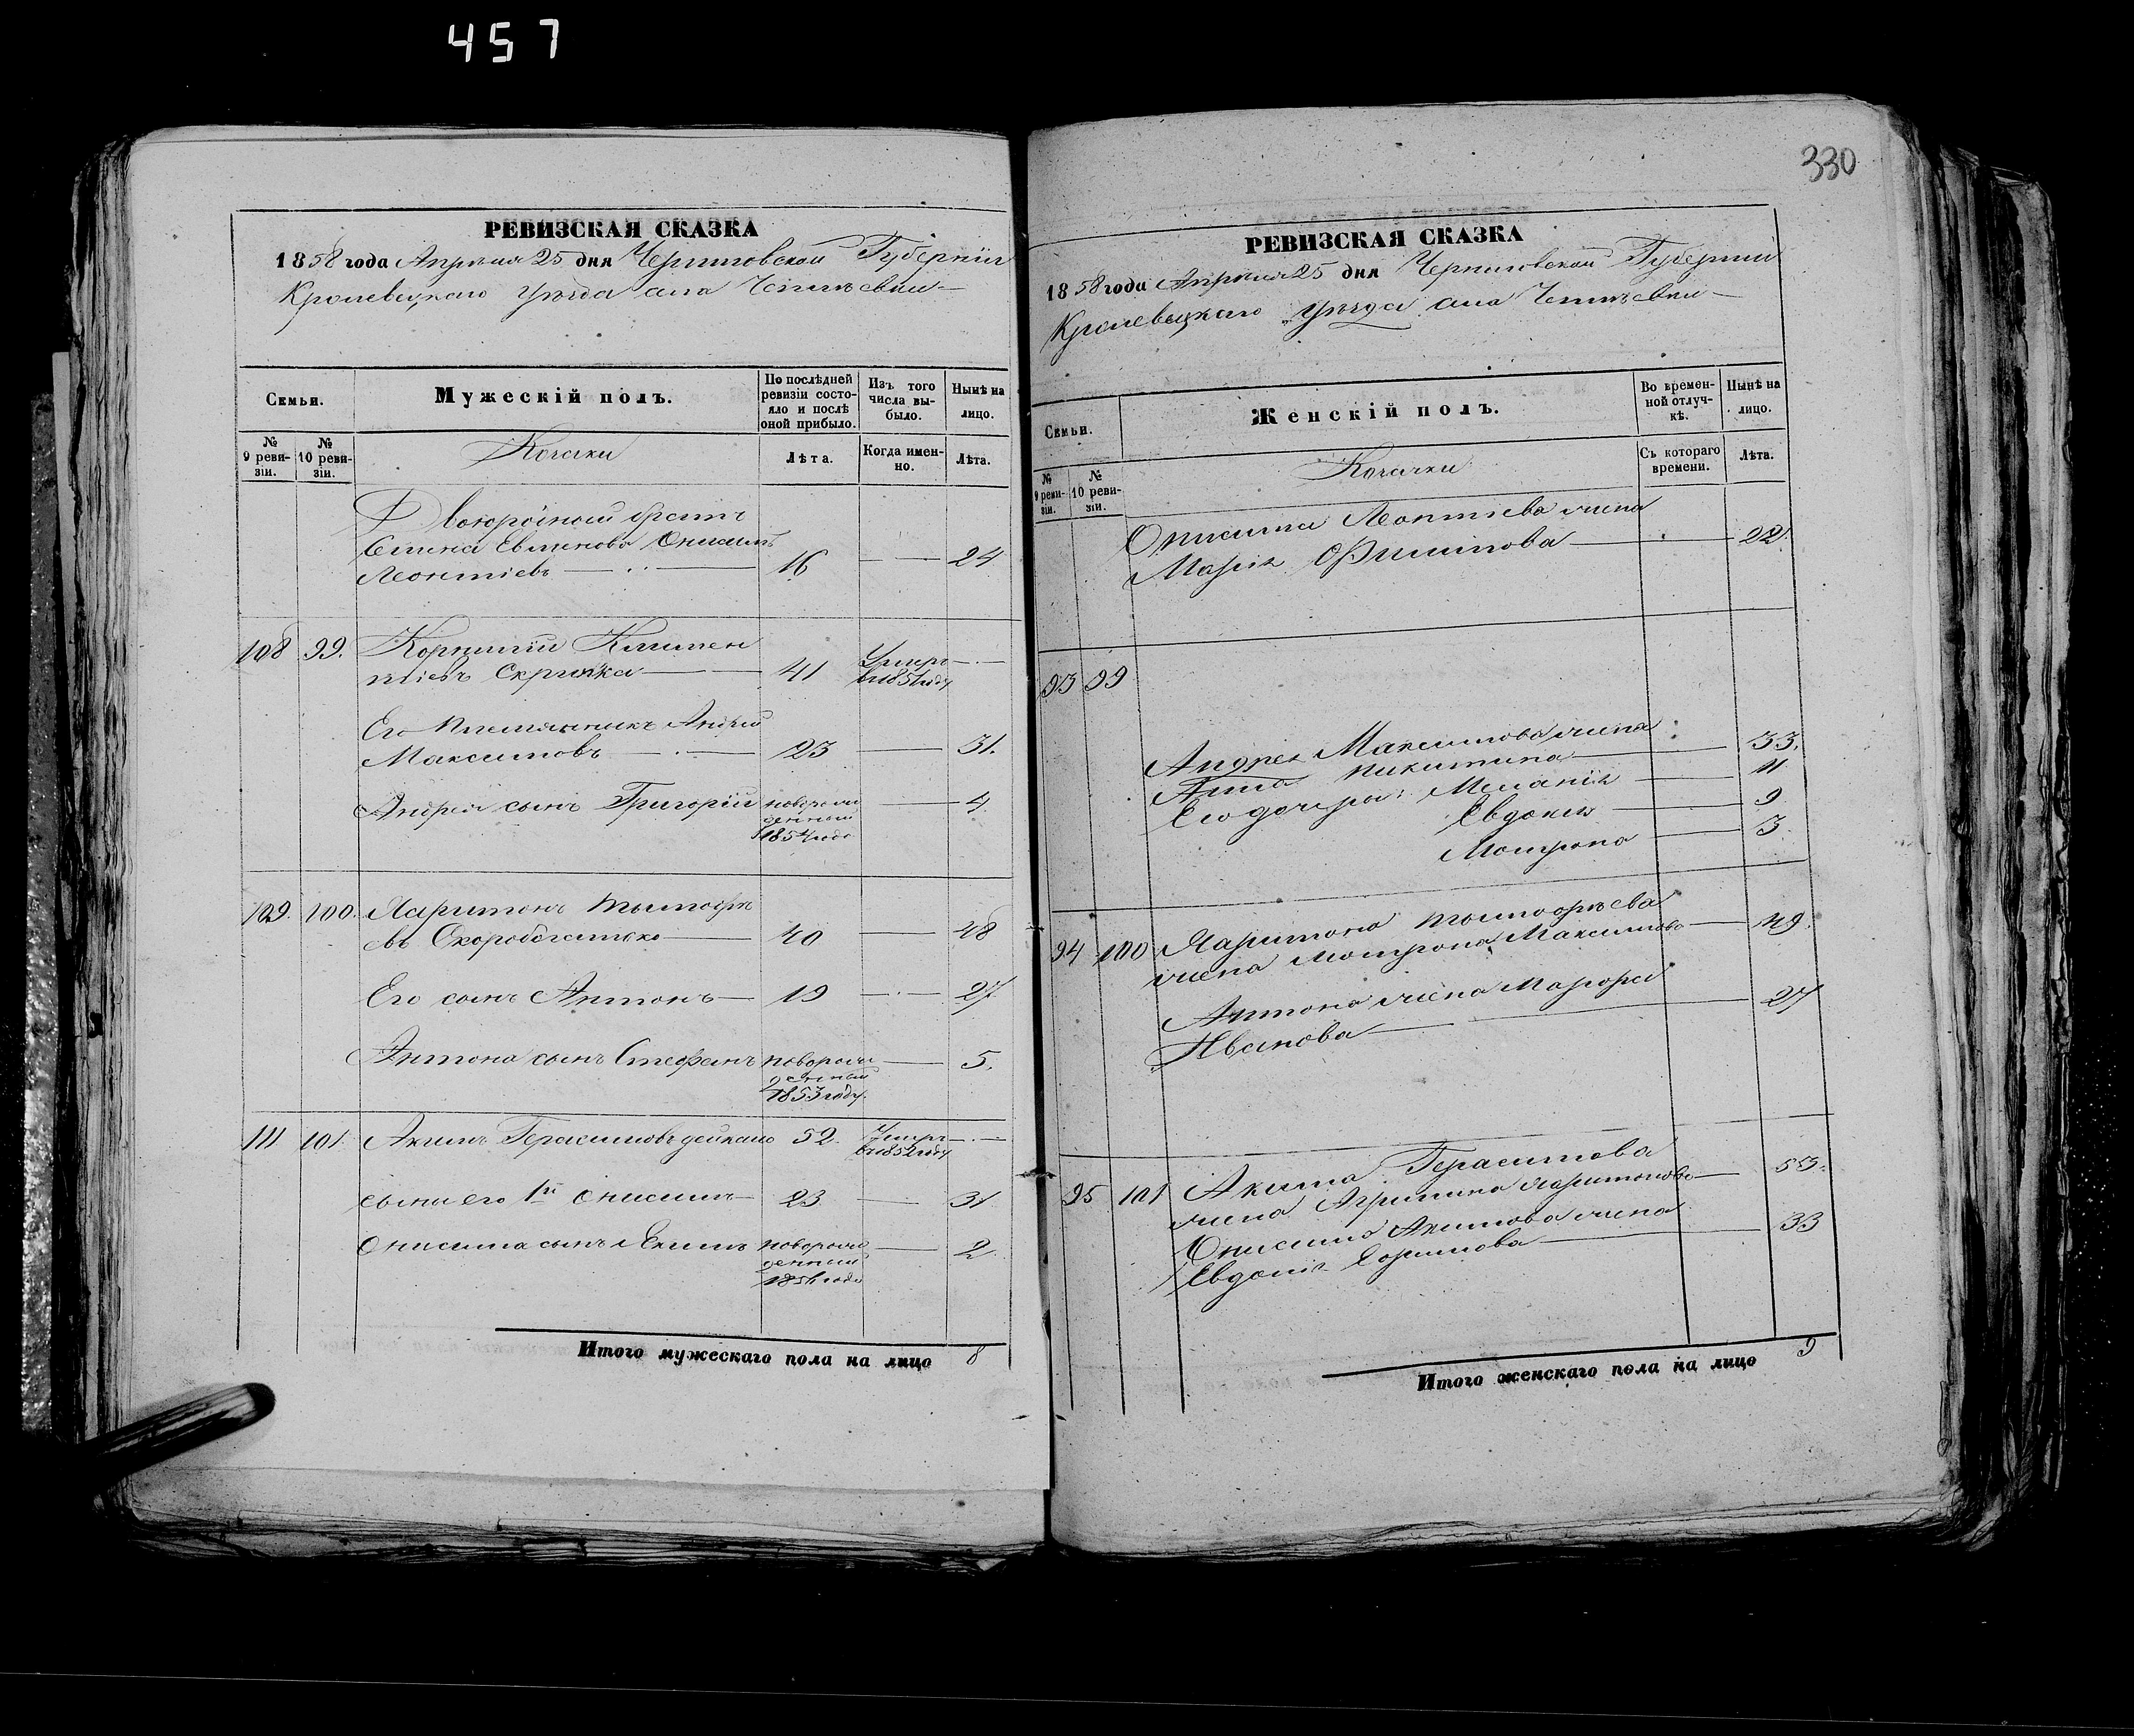 457
РЕВИЗСКАЯ СКАЗКА
1858 года Апреля 25 дня Черниговской Губернiи
Кролевецкаго уезда села
Семьи.
Мужескiй полъ.
По послѣдней ревизiи состояло и послѣ оной прибыло.
Изъ того числа выбыло.
Нынѣ на лицо.
№ 9 ревизiи.
№ 10 ревизiи.
Козаки
Лѣта.
Когда именно.
Лѣта.
Двоюродный братъ
Онисимъ
Леонтiевъ 16 24
108 99. Корнилiй Климен
тiевъ Скрипка 41 Умеръ въ 1851 году
Его племянникъ Андрей
Максимовъ 23 31.
Андрея сынъ Григорiй новорожденный 1854 года 4
109. 100. Харитонъ Тымофѣ
евъ Скоробагатько 40 48
Его сынъ Антонъ 19 27
Антона сынъ Стефанъ новорожденный 1853 году. 5.
111 101. Акимъ Герасимовъ 52. Умеръ въ 1852 году
сынъ его 1й Онисимъ 23 31
Онисима сынъ новорожденный года 2
Итого мужескаго пола на лицо 8
330
РЕВИЗСКАЯ СКАЗКА
1858 года Апреля 25 дня Черниговской Губернiи
Кролевецкаго уезда села
Семьи.
Женскiй полъ.
Во временной отлучкѣ.
Нынѣ на лицо.
№ 9 ревизiи.
№ 10 ревизiи.
Козачки
Съ котораго времени.
Лѣта.
Онисима Леонтiева жена
Марiя Филипова 22.
93 99
Андрея Максимова жена
Анна Никитина 33.
Его дочери: Меланiя 11
Евдокiя 9
Мотрона 3
94 100 Харитона Тымофѣева
жена Мотрона Максимова 49.
Антона жена Марфа
Иванова 27
95 101 Акима Герасимова
жена Агрипина Харитонова 53.
Онисима Акимова жена
Евдокiя 33
Итого женскаго пола на лицо 9